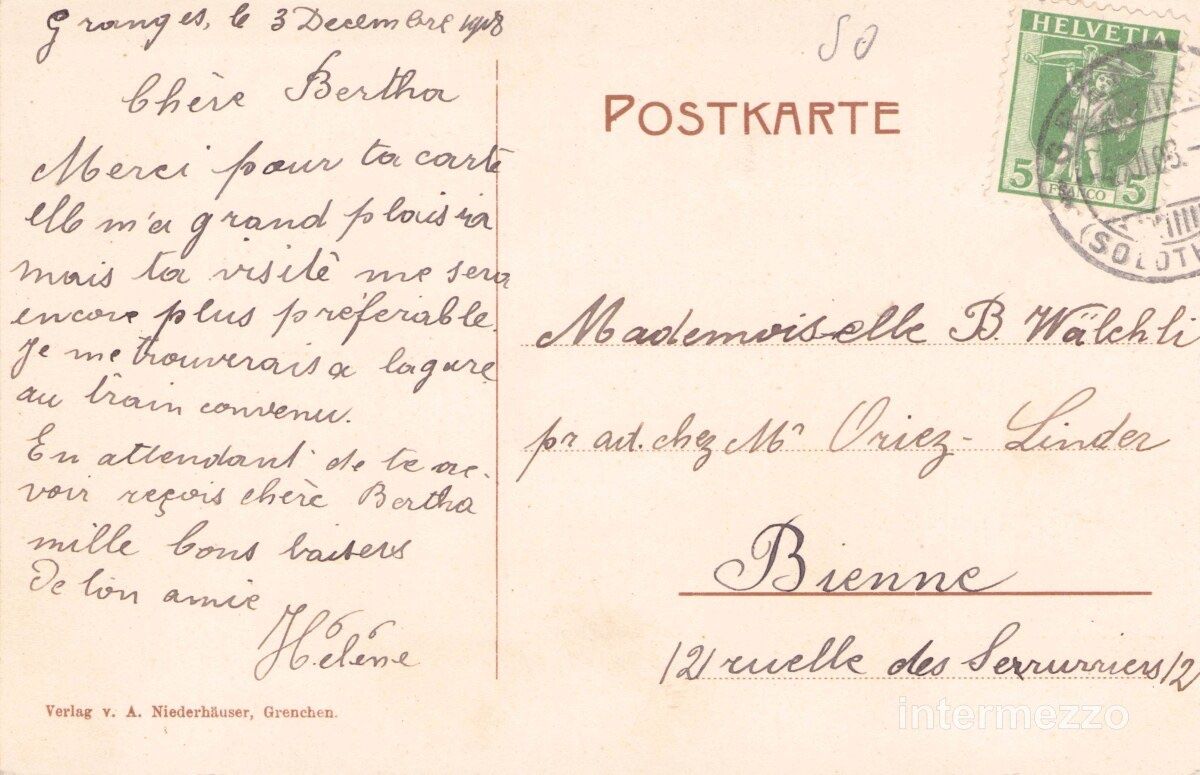 Granges, le 3 Decembre 1908
Chère Bertha
Merci pour ta carte
elle m'a grand plaisir
mais ta visite me sera
encore plus préferable.
Je me trouverais a la gare
au train convenu.
En attendant de te re-
voir reçois chère Bertha
mille bons baisers
De ton amie
Hélène
Verlag v. A. Niederhäuser, Grenchen.
50
POSTKARTE
HELVETIA
5 FRANCO 5
(SOLOTH
Mademoiselle B. Wälchli
pr ad. chez Mr Oriez-Linder
Bienne
12 ruelle des Serruriers 12
intermezzo